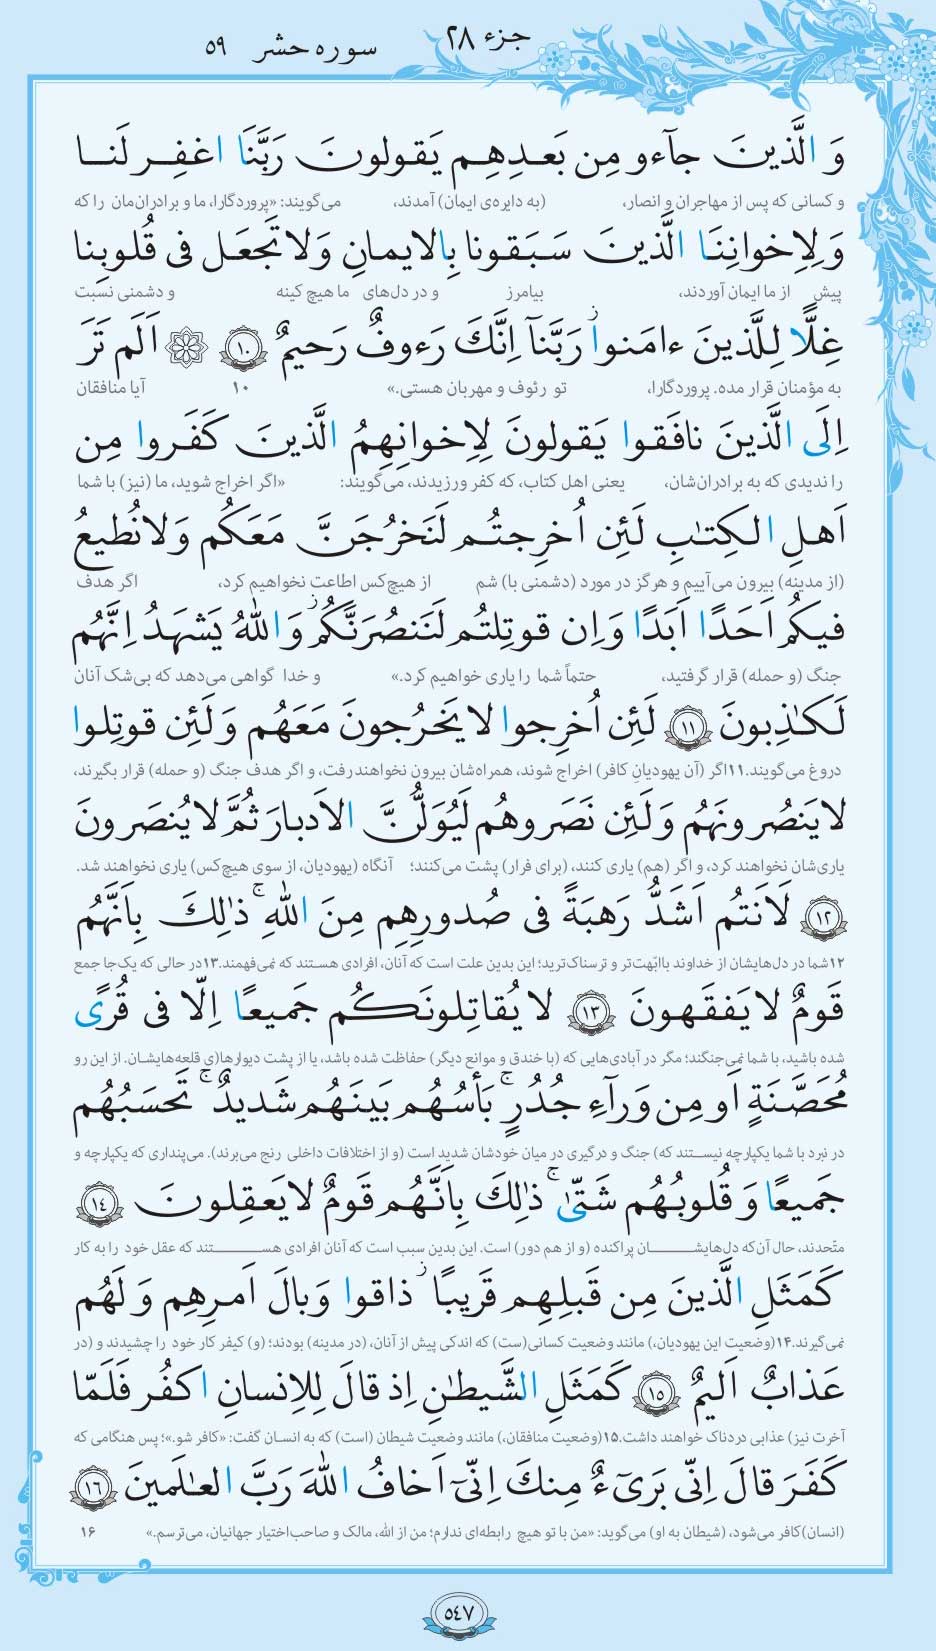 جزء ۲۸
سوره حشر ۵۹
وَ الَّذينَ جآءو مِن بَعدِهِم يَقولونَ رَبَّنَا اغفِر لَنا
و کسانی که پس از مهاجران و انصار، (به دایره‌ی ایمان) آمدند، می‌گویند: «پروردگارا، ما و برادران‌مان را که
وَ لِاِخوانِنَا الَّذينَ سَبَقونا بِالايمانِ وَلا تَجعَل فى قُلوبِنا
پیش از ما ایمان آوردند، بیامرز و در دل‌های ما هیچ کینه و دشمنی نسبت
غِلًّا لِلَّذينَ ءامَنوا ز رَبَّنآ اِنَّكَ رَءوفٌ رَحيمٌ ۱۰ اَلَم تَرَ
به مؤمنان قرار مده. پروردگارا، تو رئوف و مهربان هستی.» ۱۰ آیا منافقان
اِلَى الَّذينَ نافَقوا يَقولونَ لِاِخوانِهِمُ الَّذينَ كَفَروا مِن
را ندیدی که به برادران‌شان، یعنی اهل کتاب، که کفر ورزیدند، می‌گویند: «اگر اخراج شوید، ما (نیز) با شما
اَهلِ الكِتٰبِ لَئِن اُخرِجتُم لَنَخرُجَنَّ مَعَكُم وَلا نُطيعُ
(از مدینه) بیرون می‌آییم و هرگز در مورد (دشمنی با) شم از هیچ‌کس اطاعت نخواهیم کرد، اگر هدف
فيكُم اَحَدًا اَبَدًا وَاِن قوتِلتُم لَنَنصُرَنَّكُم ز وَاللّٰهُ يَشهَدُ اِنَّهُم
جنگ (و حمله) قرار گرفتید، حتماً شما را یاری خواهیم کرد.» و خدا گواهی می‌دهد که بی‌شک آنان
لَكٰذِبونَ ۱۱ لَئِن اُخرِجوا لا يَخرُجونَ مَعَهُم وَ لَئِن قوتِلوا
دروغ می‌گویند.۱۱اگر (آن یهودیانِ کافر) اخراج شوند، همراه‌شان بیرون نخواهند رفت، و اگر هدف جنگ (و حمله) قرار بگیرند،
لا يَنصُرونَهُم وَ لَئِن نَصَروهُم لَيُوَلُّنَّ الاَدبارَ ثُمَّ لا يُنصَرونَ
یاری‌شان نخواهند کرد، و اگر (هم) یاری کنند، (برای فرار) پشت می‌کنند؛ آنگاه (یهودیان، از سوی هیچ‌کس) یاری نخواهند شد.
۱۲ لَاَنتُم اَشَدُّ رَهبَةً فى صُدورِهِم مِنَ اللّٰهِ ۚ ذٰلِكَ بِاَنَّهُم
۱۲شما در دل‌هایشان از خداوند باابّهت‌تر و ترسناک‌ترید؛ این بدین علت است که آنان، افرادی هستند که نمی‌فهمند.۱۳در حالی که یک‌جا جمع
قَومٌ لا يَفقَهونَ ۱۳ لا يُقاتِلونَكُم جَميعًا اِلّا فى قُرًى
شده باشید، با شما نمی‌جنگند؛ مگر در آبادی‌هایی که (با خندق و موانع دیگر) حفاظت شده باشد، یا از پشت دیوارها(ی قلعه‌هایشان. از این رو
مُحَصَّنَةٍ اَو مِن وَرآءِ جُدُرٍ ۚ بَأسُهُم بَينَهُم شَديدٌ ۚ تَحسَبُهُم
در نبرد با شما یکپارچه نیستند که) جنگ و درگیری در میان خودشان شدید است (و از اختلافات داخلی رنج می‌برند). می‌پنداری که یکپارچه و
جَميعًا وَ قُلوبُهُم شَتّىٰ ۚ ذٰلِكَ بِاَنَّهُم قَومٌ لا يَعقِلونَ ۱۴
متّحدند، حال آن‌که دل‌هایشان پراکنده (و از هم دور) است. این بدین سبب است که آنان افرادی هستند که عقل خود را به کار
كَمَثَلِ الَّذينَ مِن قَبلِهِم قَريبًا ز ذاقوا وَبالَ اَمرِهِم وَ لَهُم
نمی‌گیرند.۱۴(وضعیت این یهودیان،) مانند وضعیت کسانی(ست) که اندکی پیش از آنان، (در مدینه) بودند؛ (و) کیفر کار خود را چشیدند و (در
عَذابٌ اَليمٌ ۱۵ كَمَثَلِ الشَّيطٰنِ اِذ قالَ لِلاِنسانِ اكفُر فَلَمّا
آخرت نیز) عذابی دردناک خواهند داشت.۱۵(وضعیت منافقان،) مانند وضعیت شیطان (است) که به انسان گفت: «کافر شو.»؛ پس هنگامی که
كَفَرَ قالَ اِنّى بَرىٓءٌ مِنكَ اِنّىٓ اَخافُ اللّٰهَ رَبَّ العٰلَمينَ ۱۶
(انسان)کافر می‌شود، (شیطان به او) می‌گوید: «من با تو هیچ رابطه‌ای ندارم؛ من از الله، مالک و صاحب‌اختیار جهانیان، می‌ترسم.» ۱۶
۵۴۷